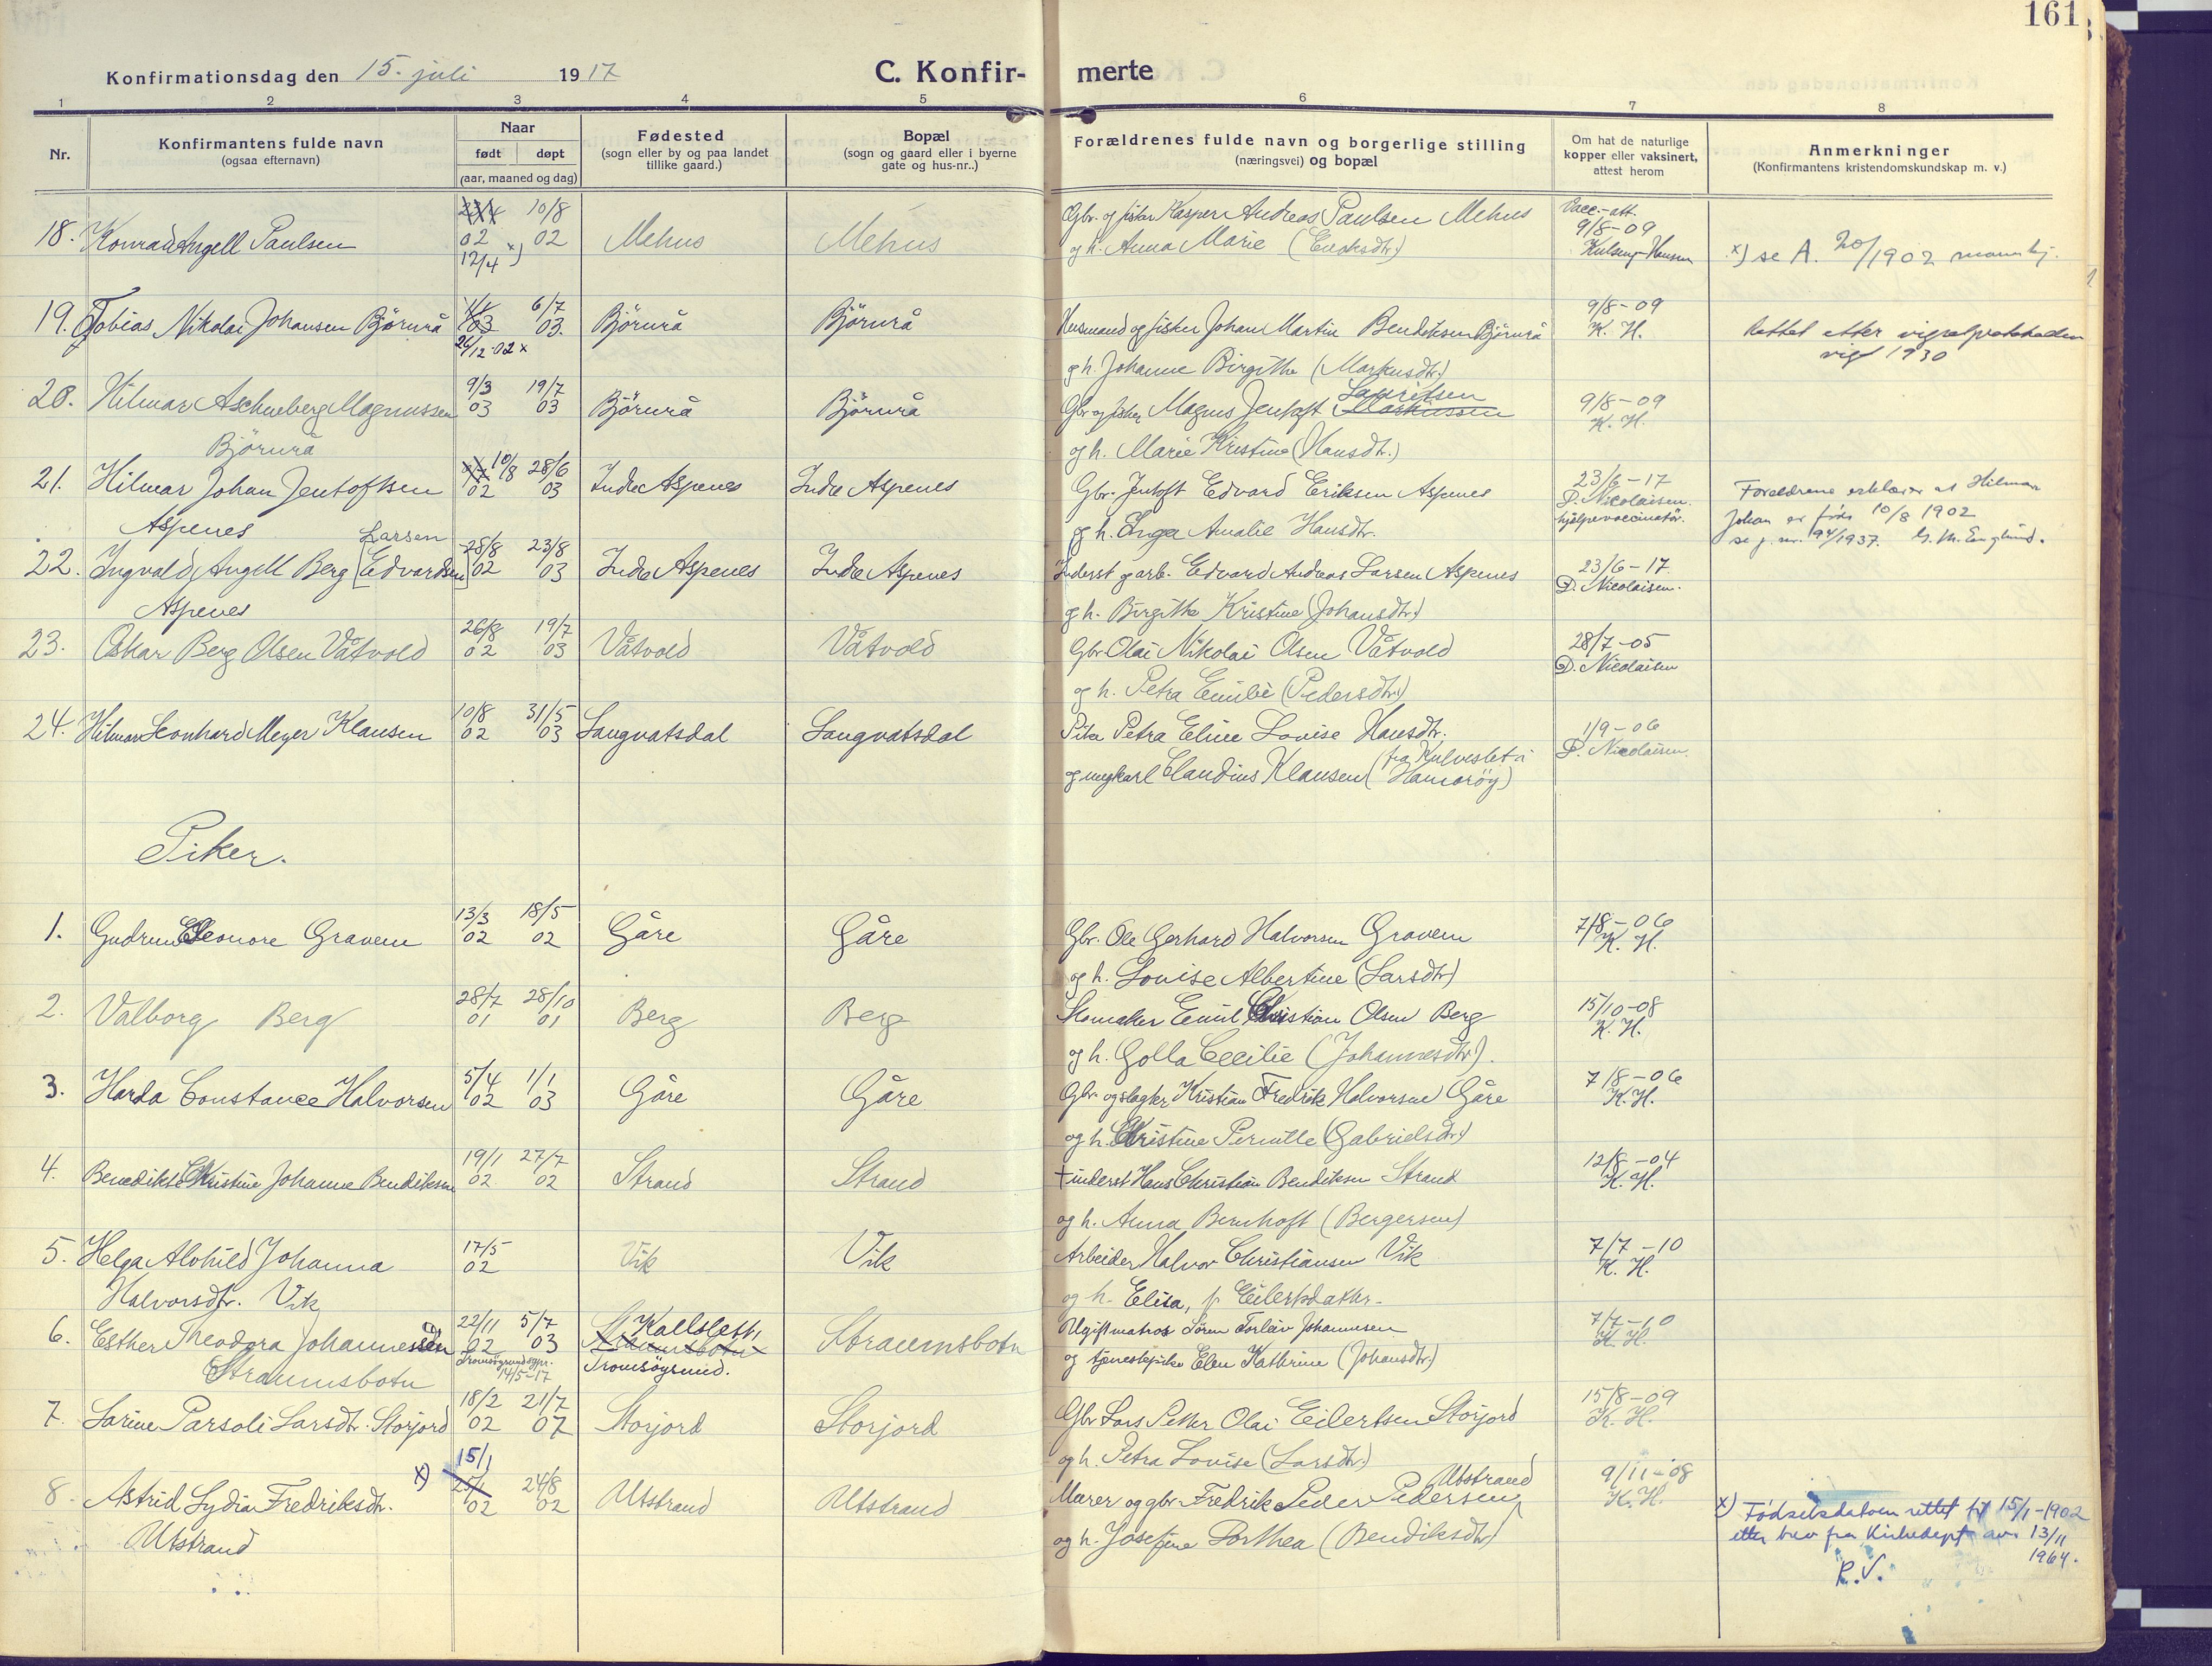 161
Konfirmationsdag den 15. juli 1917
C. Konfir- merte
1 2 3 4 5 6 7 8
Nr.
Konfirmantens fulde navn
(ogsaa efternavn)
Naar
født døpt
(aar, maaned og dag)
Fødested
(sogn eller by og paa landet
tillike gaard.)
Bopæl
(sogn og gaard eller i byerne
gate og hus-nr..)
Forældrenes fulde navn og borgerlige stilling
(næringsvei) og bopæl
Om hat de naturlige
kopper eller vaksinert,
attest herom
Anmerkninger
(Konfirmantens kristendomskundskap m. v.)
18. Konrad Angell Paulsen 02 12/4 x) 10/8 02 Mehus Mehus
Gbr. og fisker Kasper Andreas Paulsen Mehus
og h. Anna Marie (Enoksdtr.)
Vacc.-att. 9/8-09
x) se A. 20/1902
19. Tobias Nikolai Johansen Björnrå 1/1 03 26/12-02 x 6/7 03. Björnrå Björnrå
Husmand og fisker Johan Martin Bendiksen Björnrå
og h. Johanne Birgithe (Markusdtr.)
9/8-09 K. H.
Rettet etter
vigsl 1930
20. Hilmar Aschneberg Magnussen
Björnrå
9/3 03 19/7 03 Björnrå Björnrå
Gbr og fisker Magnus Jentoft Markussen Lauritsen
og h. Marie Kristine (Hansdtr.)
9/8-09 K. H.
21. Hilmar Johan Jentoftsen
Aspenes
10/8 02 28/6 03 Indre Aspenes Indre Aspenes
Gbr. Jentoft Edvard Eriksen Aspenes
og h. Inga Amalie Hansdtr.
23/6-17 D. Nicolaisen. hjelpevaccinatör.
Foreldrene erklærer at Hilmar
Johan er født 10/8 1902
se j. nr. 94/1937.
22. Ingvald Angell Berg [Edvardsen] Larsen
Aspenes
28/8 02 23/8 03 Indre Aspenes Indre Aspenes
Inderst og arb. Edvard Andreas Larsen Aspenes
og h. Birgithe Kristine (Johansdtr.)
23/6-17 D. Nicolaisen.
23. Oskar Berg Olsen Våtvold 26/8 02 19/7 03 Våtvold Våtvold
Gbr Olai Nikolai Olsen Våtvold
og h. Petra Emilie (Pedersdtr.)
28/7-05 D. Nicolaisen
24. Hilmar Leonhard Meyer Klausen 10/8 02 31/5 03 Langvatsdal Langvatsdal
Pike Petra Eline Lovise Hansdtr.
og ungkarl Claudius Klausen (fra Kulveslet i Hamarøy)
1/9-06 D. Nicolaisen.
Piker.
1. Gudrun Eleonore Gravem 13/3 02 18/5 02 Gåre Gåre
Gbr. Ole Gerhard Halvorsen Gravem
og h. Lovise Albertine (Larsdtr)
7/8-06 K. H.
2. Valborg Berg 28/7 01 28/10 01 Berg Berg
Skomaker Emil Christian Olsen Berg
og h. Golla Cecilie (Johannesdtr.).
15/10-08 K. H.
3. Harda Constance Halvorsen 5/4 02 1/1 03 Gåre Gåre
Gbr. og slagter Kristian Fredrik Halvorsen Gåre
og h. Christine Pernille (Gabrielsdtr.)
7/8-06 K. H.
4. Benedikte Christine Johanne Bendiksen 19/1 02 27/7 02 Strand Strand
+ inderst Hans Christian Bendiksen Strand
og h. Anna Bernhoft (Bergersen)
12/8-04 K. H.
5. Helga Alvhild Johanna
Halvorsdtr. Vik
17/5 02 Vik Vik
Arbeider Halvor Christiansen Vik
og h. Elisa, f. Eilertsdatter.
7/7-10 K. H.
6. Esther Theodora Johannessen
Straumsbotn
22/11 02 5/7 03 14/5-17
Straumsbotn Kallslett, Tromsøysund. Straumsbotn
Ugift matros Sören Torleiv Johannesen
og tjenestepike Elen Kathrine (Johansdtr.)
7/7-10 K. H.
7. Larine Parsoli Larsdtr. Storjord 18/2 02 21/7 07 Storjord Storjord
Gbr Lars Petter Olai Eilertsen Storjord
og h. Petra Lovise (Larsdtr.)
15/8-09 K. H.
8. Astrid Lydia Fredriksdtr. x)
Utstrand
15/1 25/1 02 24/8 02 Utstrand Utstrand
Murer og gbr. Fredrik Peder Pedersen Utstrand
og h. Josefine Dorthea (Bendiksdtr)
9/11-08 K. H.
x) Fødselsdatoen rettet til 15/1-1902
etter brev fra Kirkedept av 13/11
1964.
R.V.